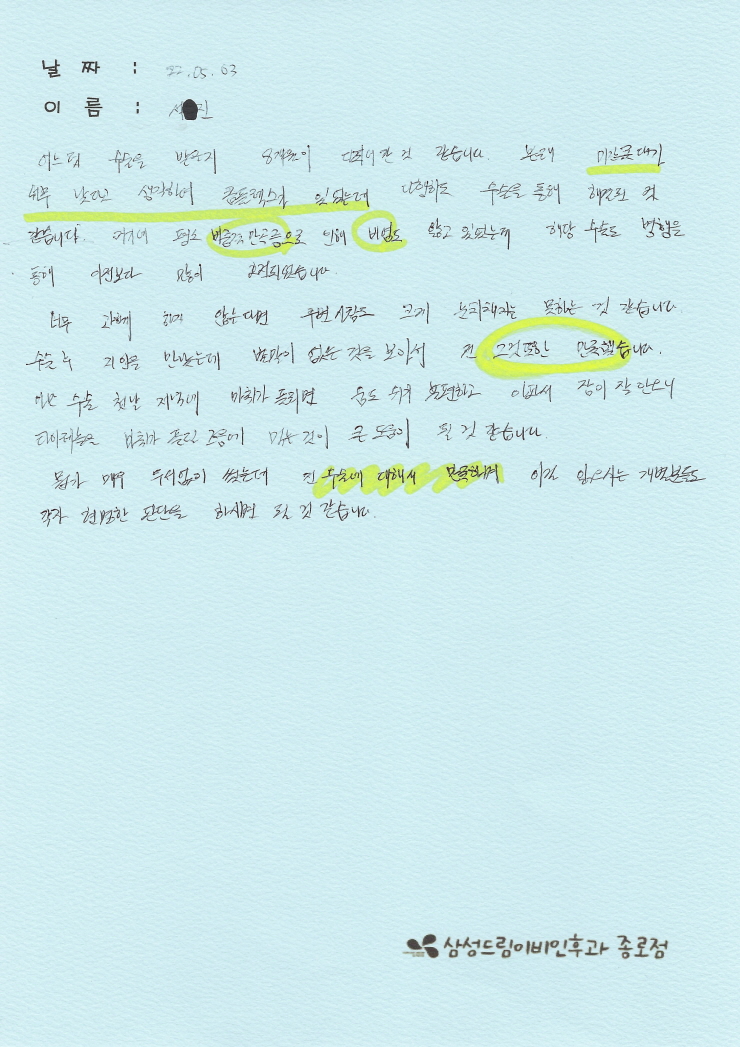 날 짜 : 22.05.03
이 름 : 서 진
어느덧 수술을 받은지 8개월이 다되어 간 것 같습니다. 본래 미간과 콧대가
너무 낮다고 생각하여 콤플렉스가 있었는데 다행히도 수술을 통해 해결된 것
같습니다. 거기에 평소 비중격만곡증으로 인해 비염도 앓고 있었는데 해당 수술도 병행을
통해 이전보다 많이 호전되었습니다.
너무 과하게 하지 않는다면 주변사람도 크게 눈치채지는 못하는 것 같습니다.
수술 후 지인을 만났는데 별말이 없는 것을 보아서 전 그것 또한 만족했습니다.
수술 첫날 저녁에 마취가 풀리면 숨도 쉬기 불편하고 아파서 잠이 잘 안오니
타이레놀을 마취가 풀릴 즈음에 먹는 것이 큰 도움이 될 것 같습니다.
뭔가 매우 두서없이 썼는데 전 수술에 대해서 만족하며 이걸 읽으시는 개번분들도
각자 현명한 판단을 하시면 될 것 같습니다.
삼성드림이비인후과 종로점